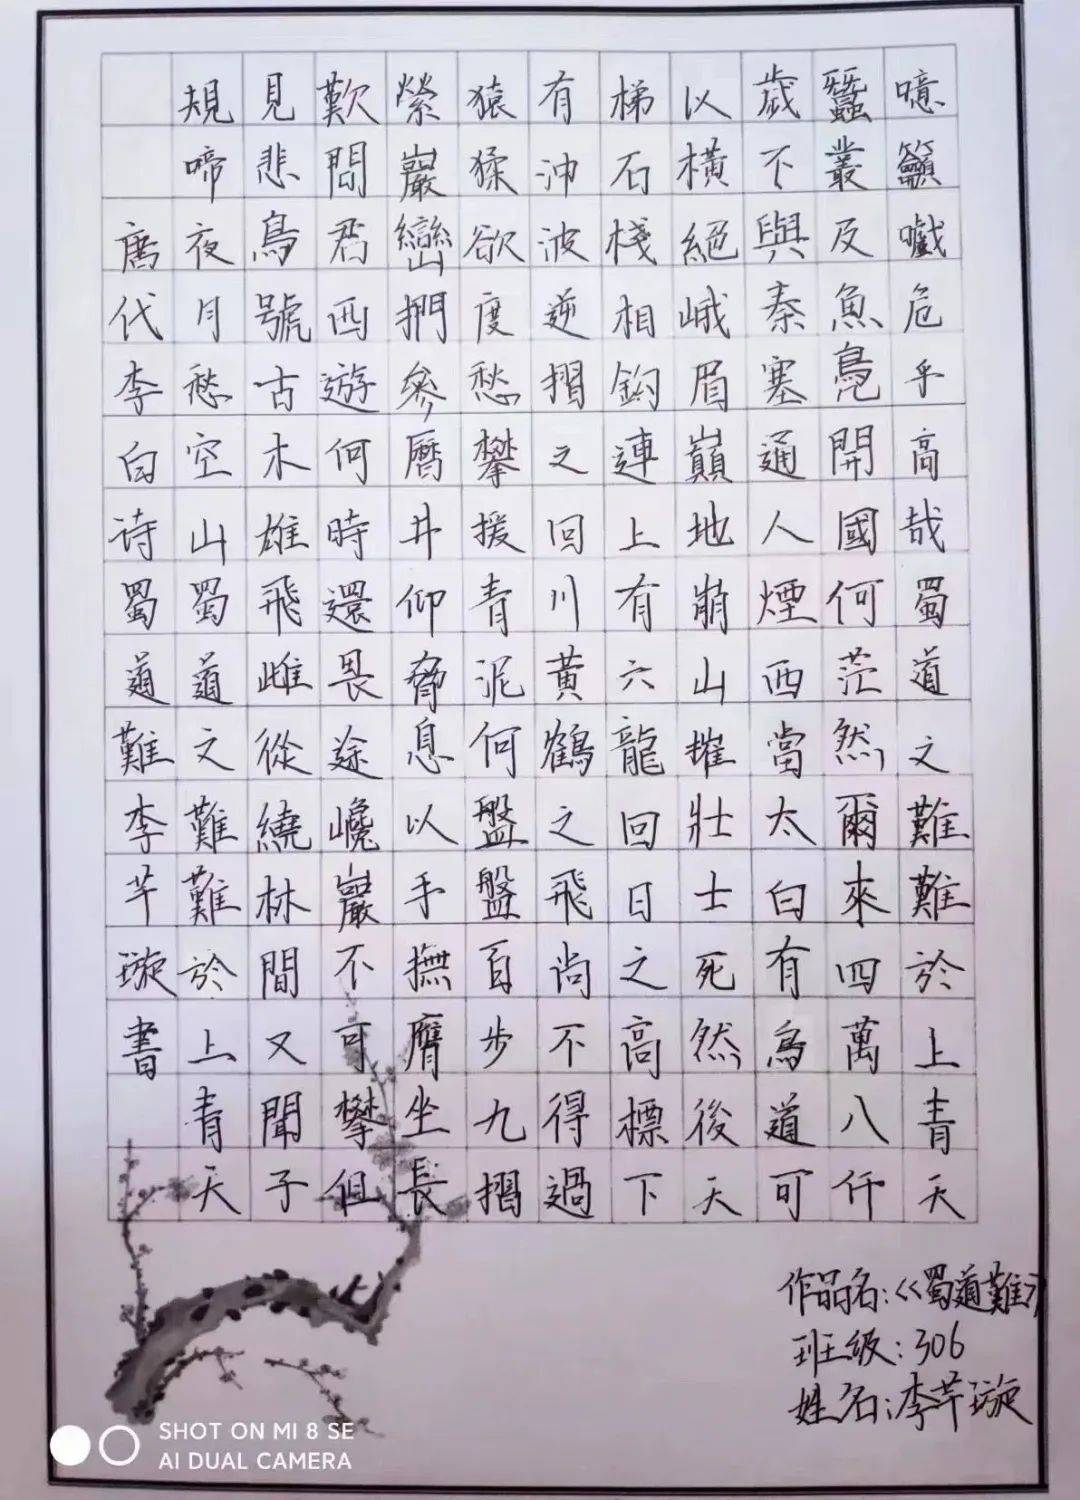 噫籲嚱危乎高哉蜀道之難難於上青天
蠶叢及魚鳧開國何茫然爾來四萬八仟
歲不與秦塞通人煙西當太白有鳥道可
以橫絕峨眉巔地崩山摧壯士死然後天
梯石棧相鉤連上有六龍回日之高標下
有沖波逆摺之回川黃鶴之飛尚不得過
猿猱欲度愁攀援青泥何盤盤百步九摺
縈巖巒捫參曆井仰脅息以手撫膺坐長
歎問君西遊何時還畏途巉巖不可攀但
見悲鳥號古木雄飛雌從繞林間又聞子
規啼夜月愁空山蜀道之難難於上青天
唐代李白诗蜀道難李芊璇書
作品名:《蜀道難》
班级:306
姓名:李芊璇
SHOT ON MI 8 SE
AI DUAL CAMERA